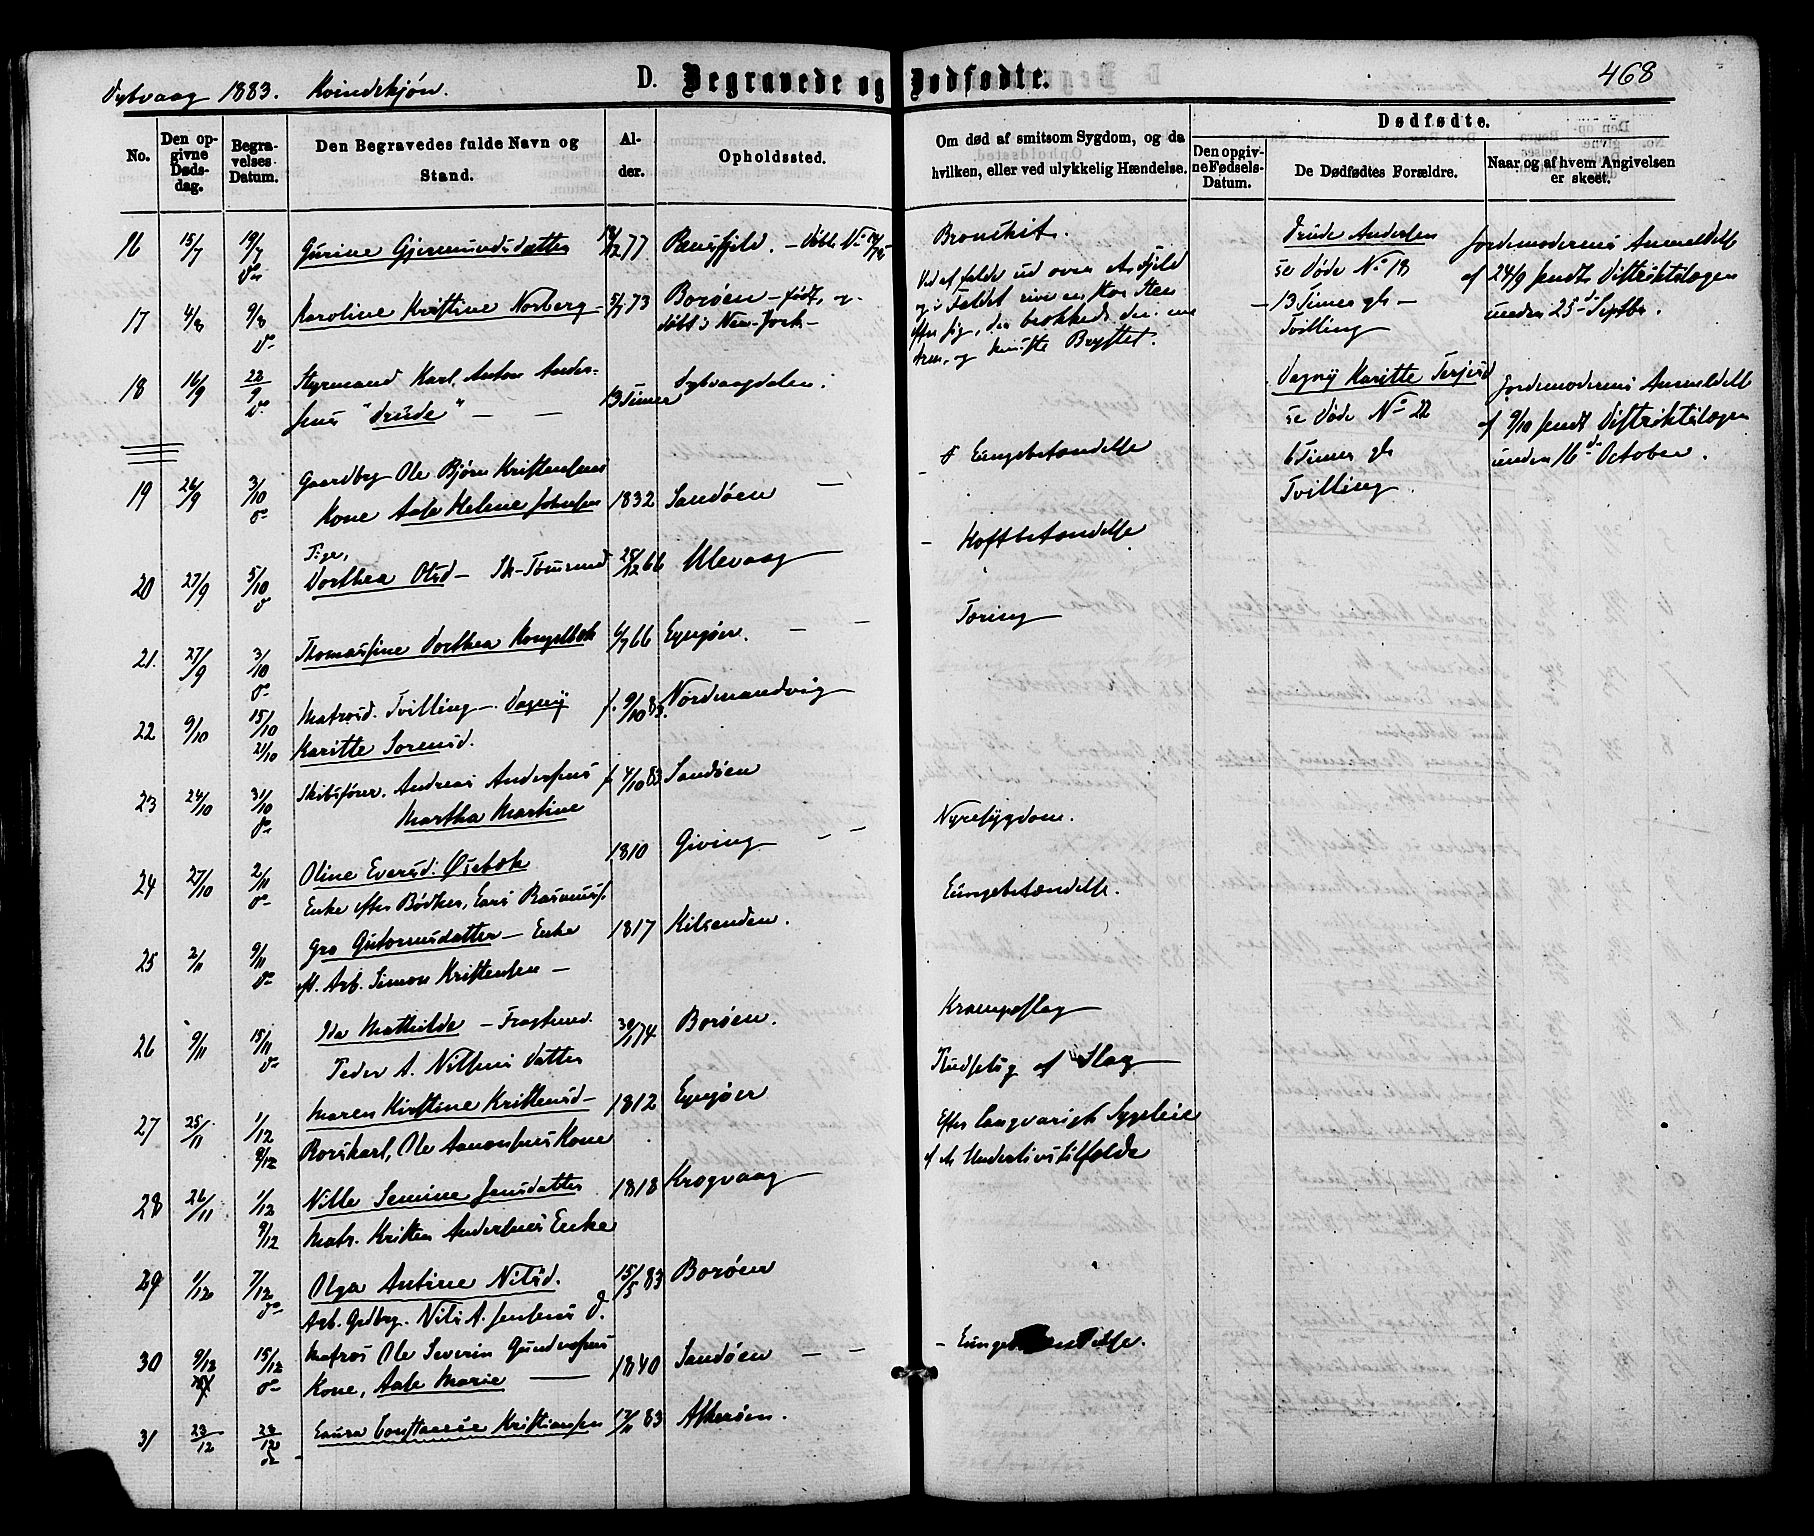 Dybvaag 1883. Kvindekjøn.
D. Begravede og Dødfødte.
468
No.
Den opgivne Dødsdag.
Begravelses Datum.
Den Begravedes fulde Navn og Stand.
Alder.
Opholdssted.
Om død af smitsom Sygdom, og da hvilken, eller ved ulykkelig Hændelse.
Dødfødte.
Den opgivne Fødsels-Datum.
De Dødfødtes Forældre.
Naar og af hvem Angivelsen er skeet.
16 15/7 19/7 Gurine Gjermundsdatter 77 Bronchit.
17 4/8 9/8 Karoline Kristine Norberg 5/7 73 Borøen – født og
døbt i New-York –
Ved at falde ud over et Fjeld
og i Faldet rive en stor Sten
efter sig, der brækkede den ene
Arm, og knuste Brystet.
18 16/9 22/9 Styrmand Karl Anton Ander-
sens "Trude" – – 13 Timer Dybvaagdalen.
Trude Andersen
se Døde No 18
13 Timer gl –
Tvilling
Jordemoderens Anmeldelse
af 24/9 sendt Distriktslægen
under 25d Septbr.
Dagny Karitte Terjesd
se Døde No 22
6 Timer gl
Tvilling.
Jordemoderens Anmeldelse
af 9/10 sendt Distriktslægen
under 16d October.
19 26/9 3/10 Gaardbr. Ole Bjørn Kristensens
Kone Aase Helene Johnsen 1832 Sandøen – Lungebetændelse
20 27/9 5/10 Pige,
Dorthea Olsd – 28/12 66 Ulevaag – Hoftbetændelse
21. 27/9 3/10 Thomassine Dorthea Kongelbæk 6/7 66 Lyngøer. – – Tæring
22 9/10 15/10 21/10 Matrosd. Tvilling – Dagny
Karitte Sørensd. f. 9/10 83. Nordmandvig
23 24/10 31/10 Skibsfører. Andreas Andersens
Martha Martine f 4/10 83 Sandøen
24 27/10 2/11 Oline Eversd. Øsebæk
Enke efter Bødker, Lars Rasmuss. 1810 Giving – – Nyresygdom.
25 2/11 9/11 Gro Gutormsdatter – Enke
eft. Arb. Simon Kristensen – 1817 Kilsanden. Lungebetændelse.
26 9/11 15/11 Ida Mathilde – Fragtmd.
Peder A. Nilsens Datter 74 Borøen. Krampeslag
27 25/11 1/12 9/12 Maren Kirstine Kristensd –
Rorskarl, Ole Aanonsens Kone 1812 Lyngøer Pludselig af Slag
28 26/11 1/12 9/12 Nille Semine Jensdatter
Matr. Kristen Andersens Enke 1818 Krogvaag
Efter langvarigt Sygeleie
af et Underlivstilfælde
29 1/12 7/12 Olga Antine Nilsd.
Arb. Grdbrg. Nils A. Jensens D. 15/5 83 Borøen
30 9/12 15/12 Matros Ole Severin Gundersens
Kone, Aase Marie 1840 Sandøen – – – Lungebetændelse.
31 23/12 28/12 Laura Constance Kristiansen 83 Askerøen.